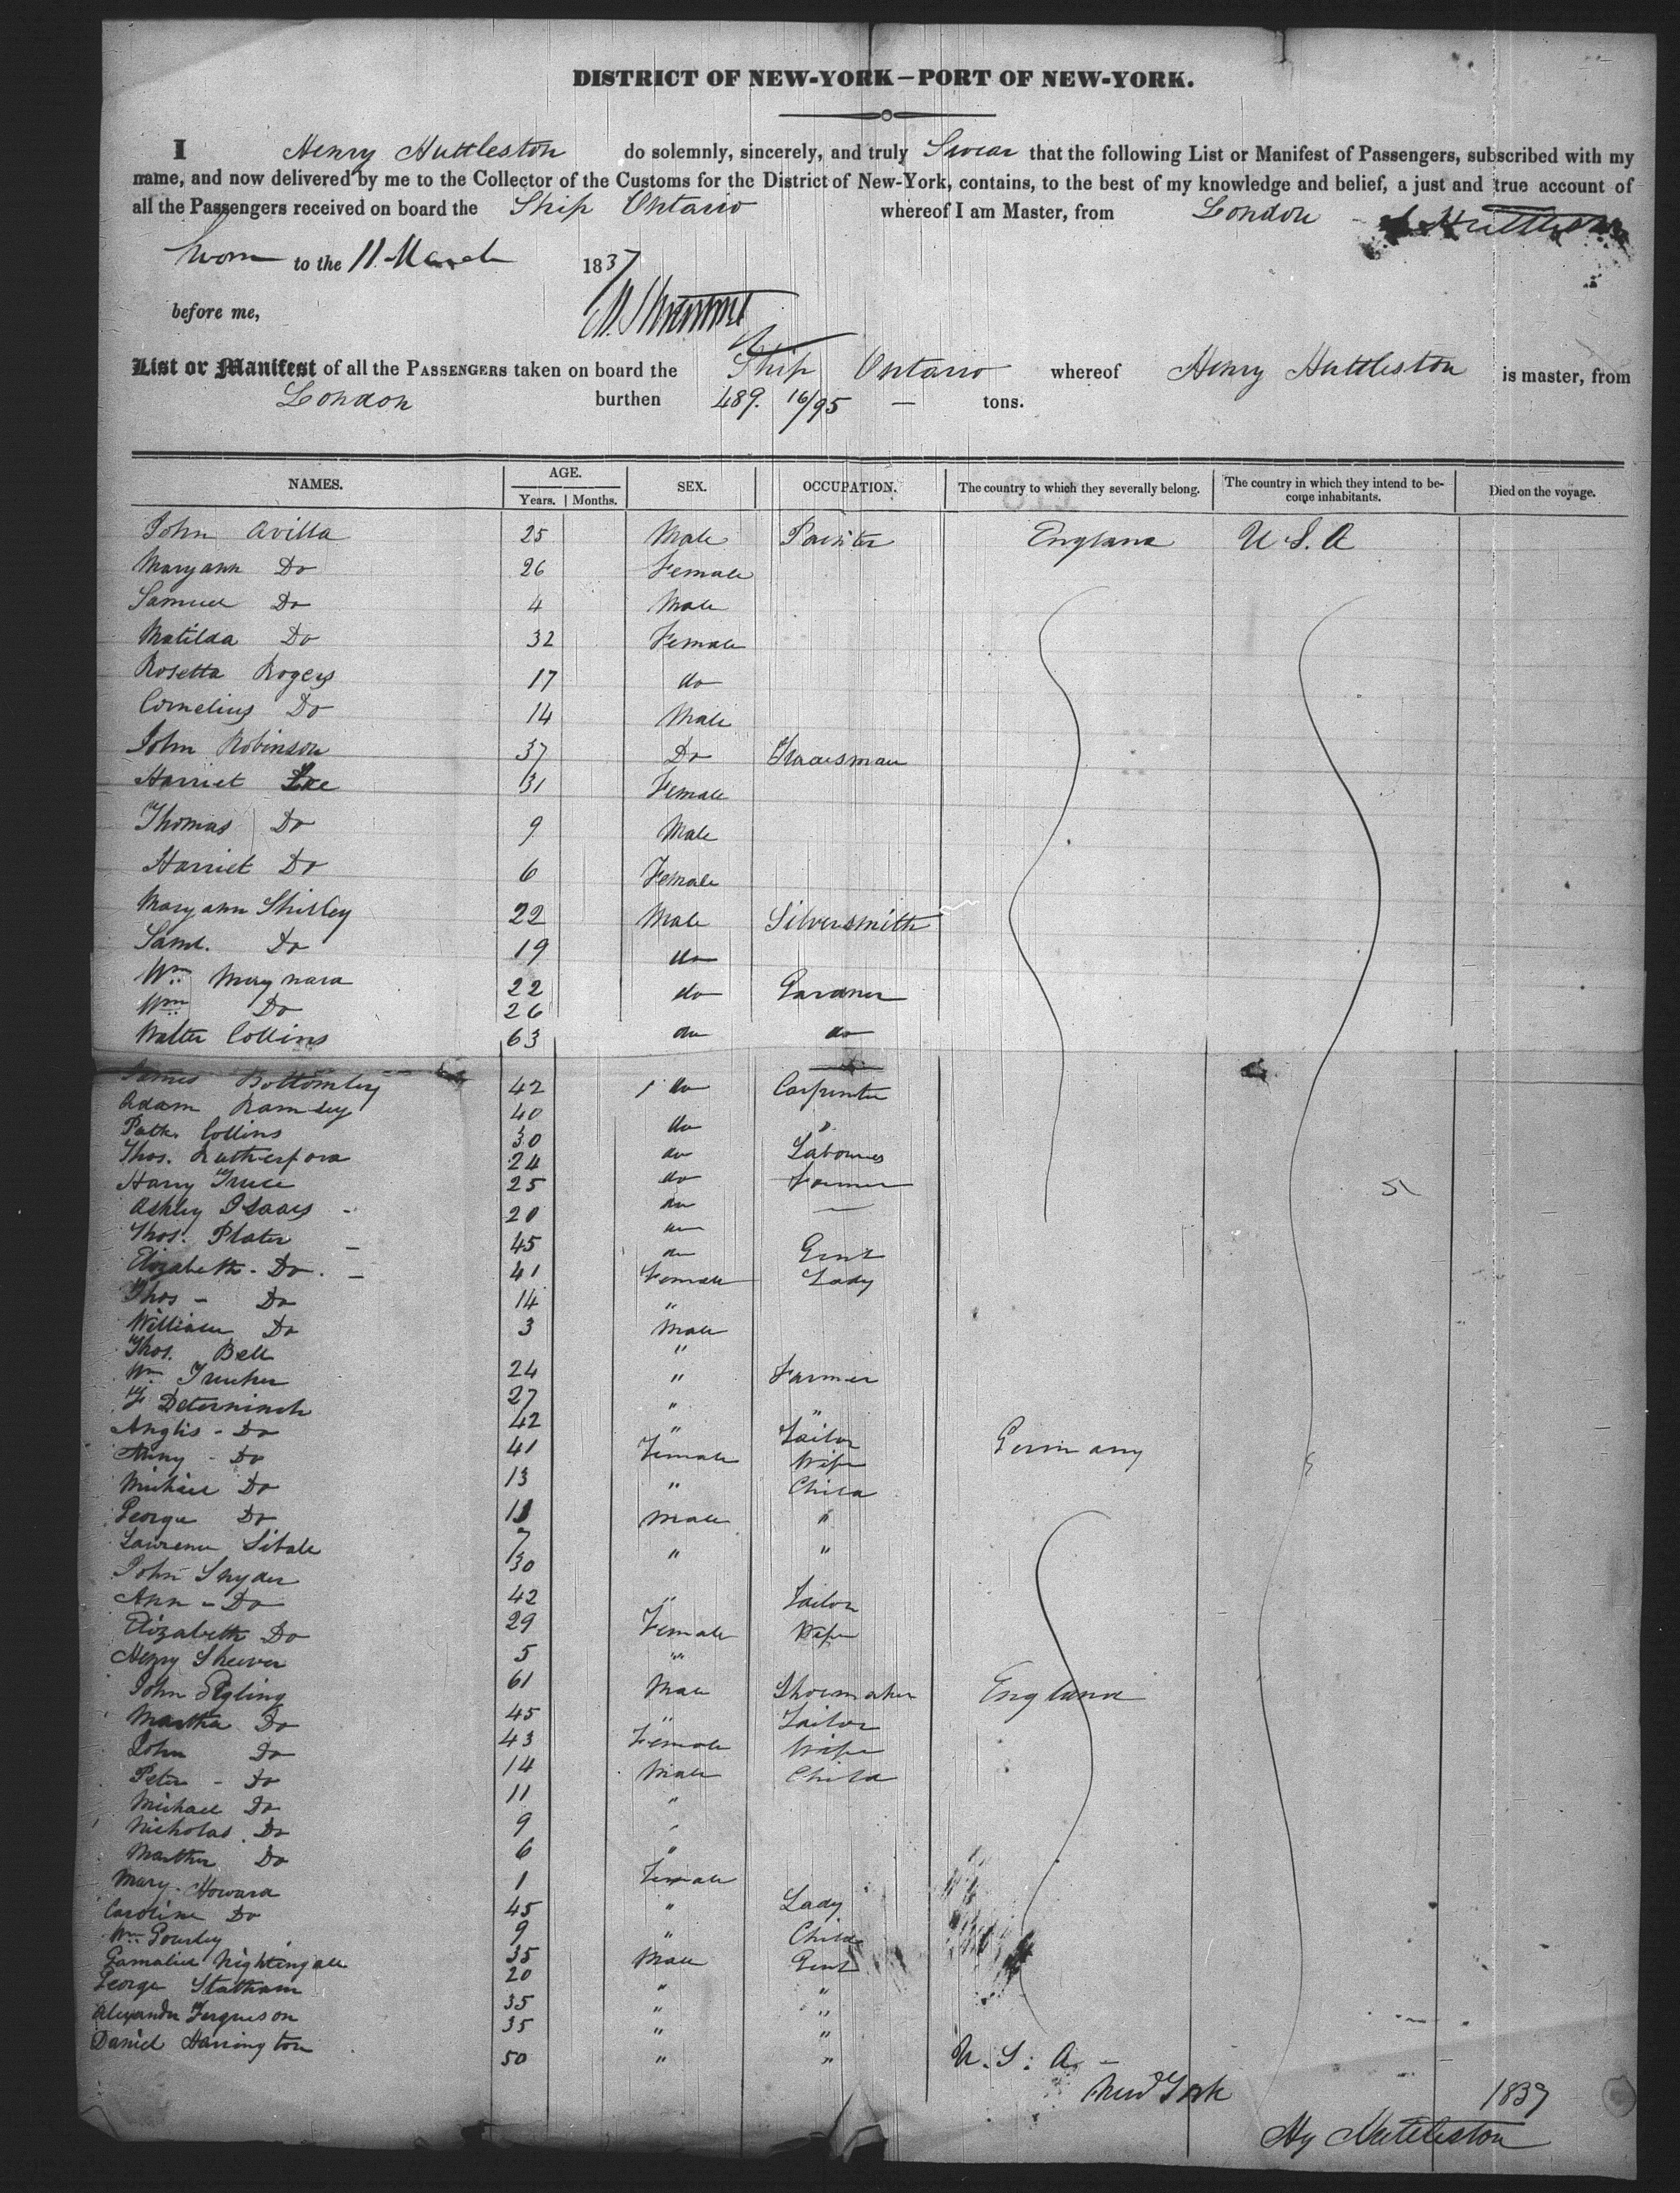 DISTRICT OF NEW-YORK—PORT OF NEW-YORK.
I Henry Huttleston do solemnly, sincerely, and truly Swear that the following List or Manifest of Passengers, subscribed with my
name, and now delivered by me to the Collector of the Customs for the District of New-York, contains, to the best of my knowledge and belief, a just and true account of
all the Passengers received on board the Ship Ontario whereof I am Master, from London H Huttleston
Sworn to the 11 March 1837
before me,
List or Manifest of all the PASSENGERS taken on board the Ship Ontario whereof Henry Huttleston is master, from
London burthen 489. 16/95 — tons.
NAMES. AGE. SEX. OCCUPATION. The country to which they severally belong. The country in which they intend to be-
Years. Months. come inhabitants. Died on the voyage.
John Avilla 25 Male Painter England U.S.A
Maryann Do 26 Female
Samuel Do 4 Male
Matilda Do 32 Female
Rosetta Rogers 17 do
Cornelius Do 14 Male
John Robinson 37 Do Tradesman
Harriet 31 Female
Thomas Do 9 Male
Harriet Do 6 Female
Maryann Shirley 22 Male Silversmith
Saml. Do 19 do
Wm Maynard 22 do Gardner
Wm Do 26
Walter Collins 63 do do
James Bottomley 42 do Carpenter
Adam Ramsey 40 do "
Patk. Collins 30 do Labourer
Thos. Rutherford 24 do Farmer
Harry Truce 25 do —
Ashley Isaacs - 20 do
Thos. Plater — 45 do Gent
Elizabeth - Do. — 41 Female Lady
Thos - Do 14 "
William Do 3 Male
Thos. Bell 24 " Farmer
Wm 27 " "
F Deterninch 42 " Tailor Germany
Anglis - Do 41 Female Wife
Do 13 " Child
Michael Do 11 Male "
George Do 7 " "
Lawrence Sibale 30
John Snyder 42 " Tailor
Ann - Do 29 Female Wife
Elizabeth Do 5 "
Henry Sheever 61 Male Shoemaker England
John 45 " Tailor
Martha Do 43 Female Wife
John Do 14 Male Child
Peter - Do 11 "
Michael Do 9 "
Nicholas Do 6 "
Marther Do 1 Female
Mary - Howard 45 " Lady
Caroline Do 9 " Child
Wm Gourley 35 Male Gent
Gamaliel Nightingale 20 " "
George Statham 35 " "
Alexander Ferguson 35 " "
Daniel Harrington 50 " " U.S.A. -
New York 1837
Hy Huttleston